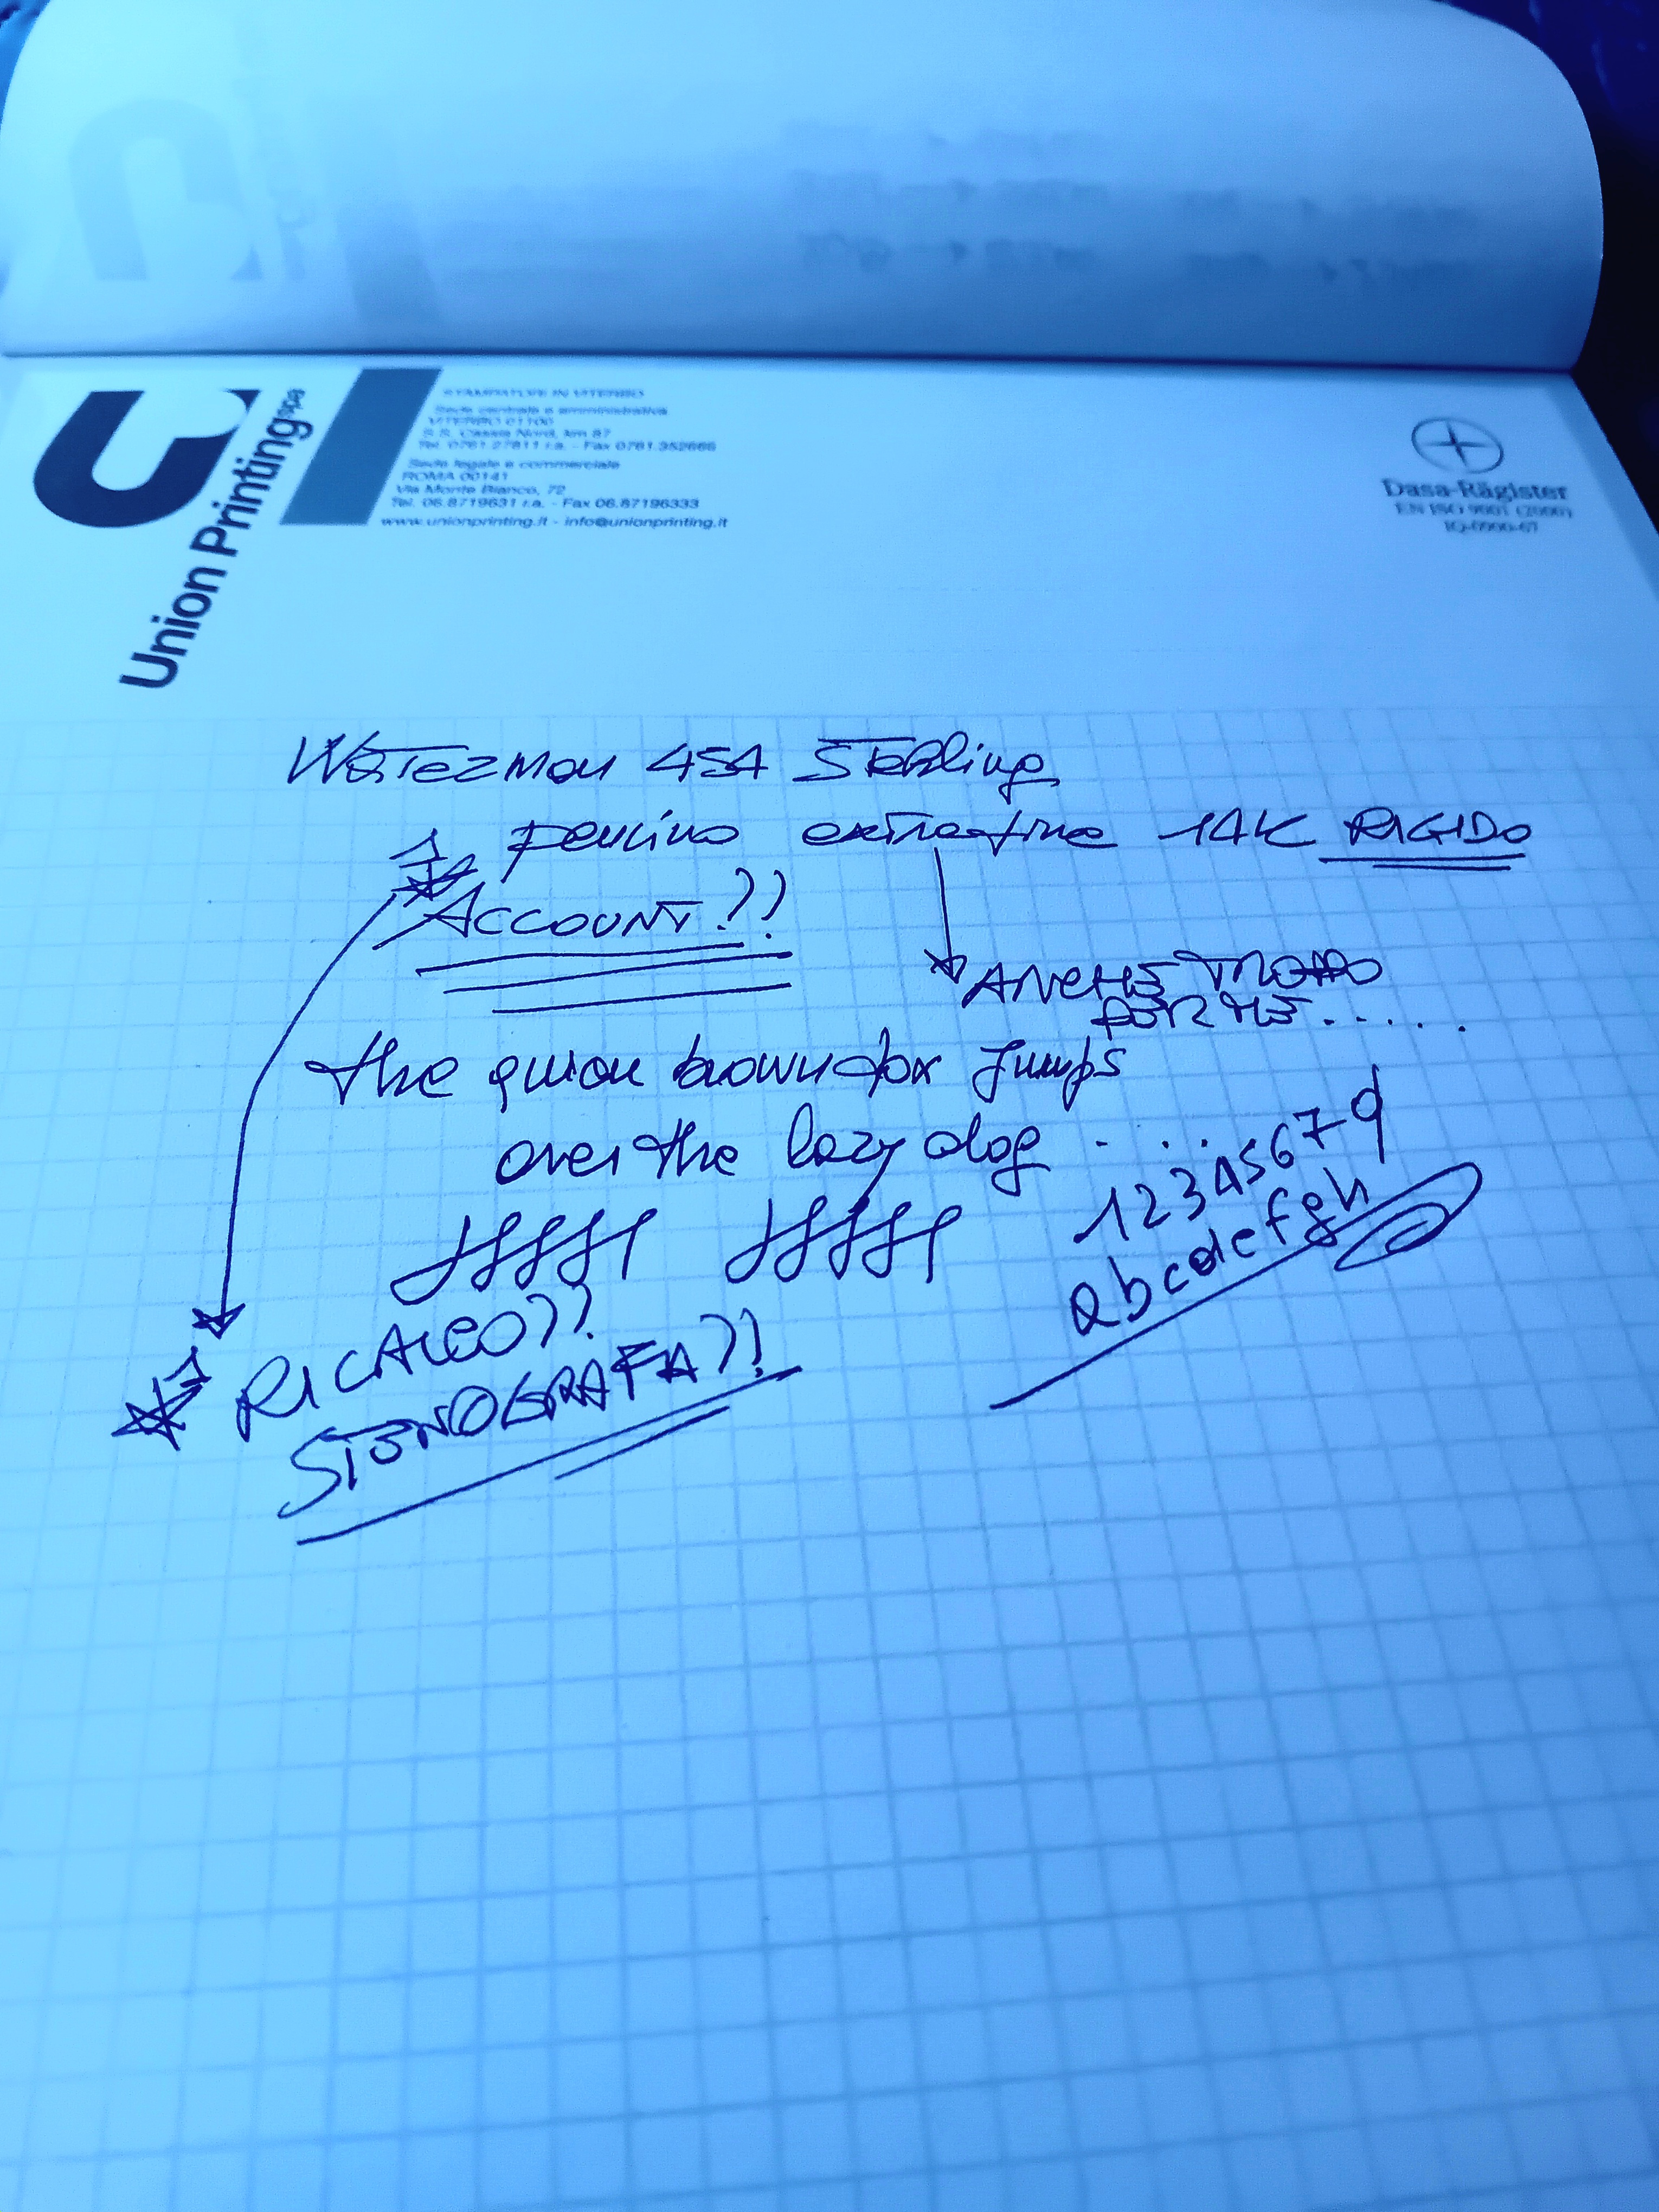 Union Printing spa
STAMPATORI IN VITERBO
Sede centrale e amministrativa
VITERBO 01100
S.S. Cassia Nord, km 87
Tel. 0761.27811 r.a. - Fax 0761.352666
Sede legale e commerciale
ROMA 00141
Via Monte Bianco, 72
Tel. 06.8719631 r.a. - Fax 06.87196333
www.unionprinting.it - info@unionprinting.it
Dasa-Rägister
EN ISO 9001 (2000)
IQ-0900-07
Waterman 454 Sterling
1 pennino extrafine 14K RIGIDO
ACCOUNT??
ANCHE TROPPO
PER ME.....
the quick brown fox Jumps
over the lazy dog ....
12345679
abcdefgh
1 RICALCO??
STENOGRAFA??